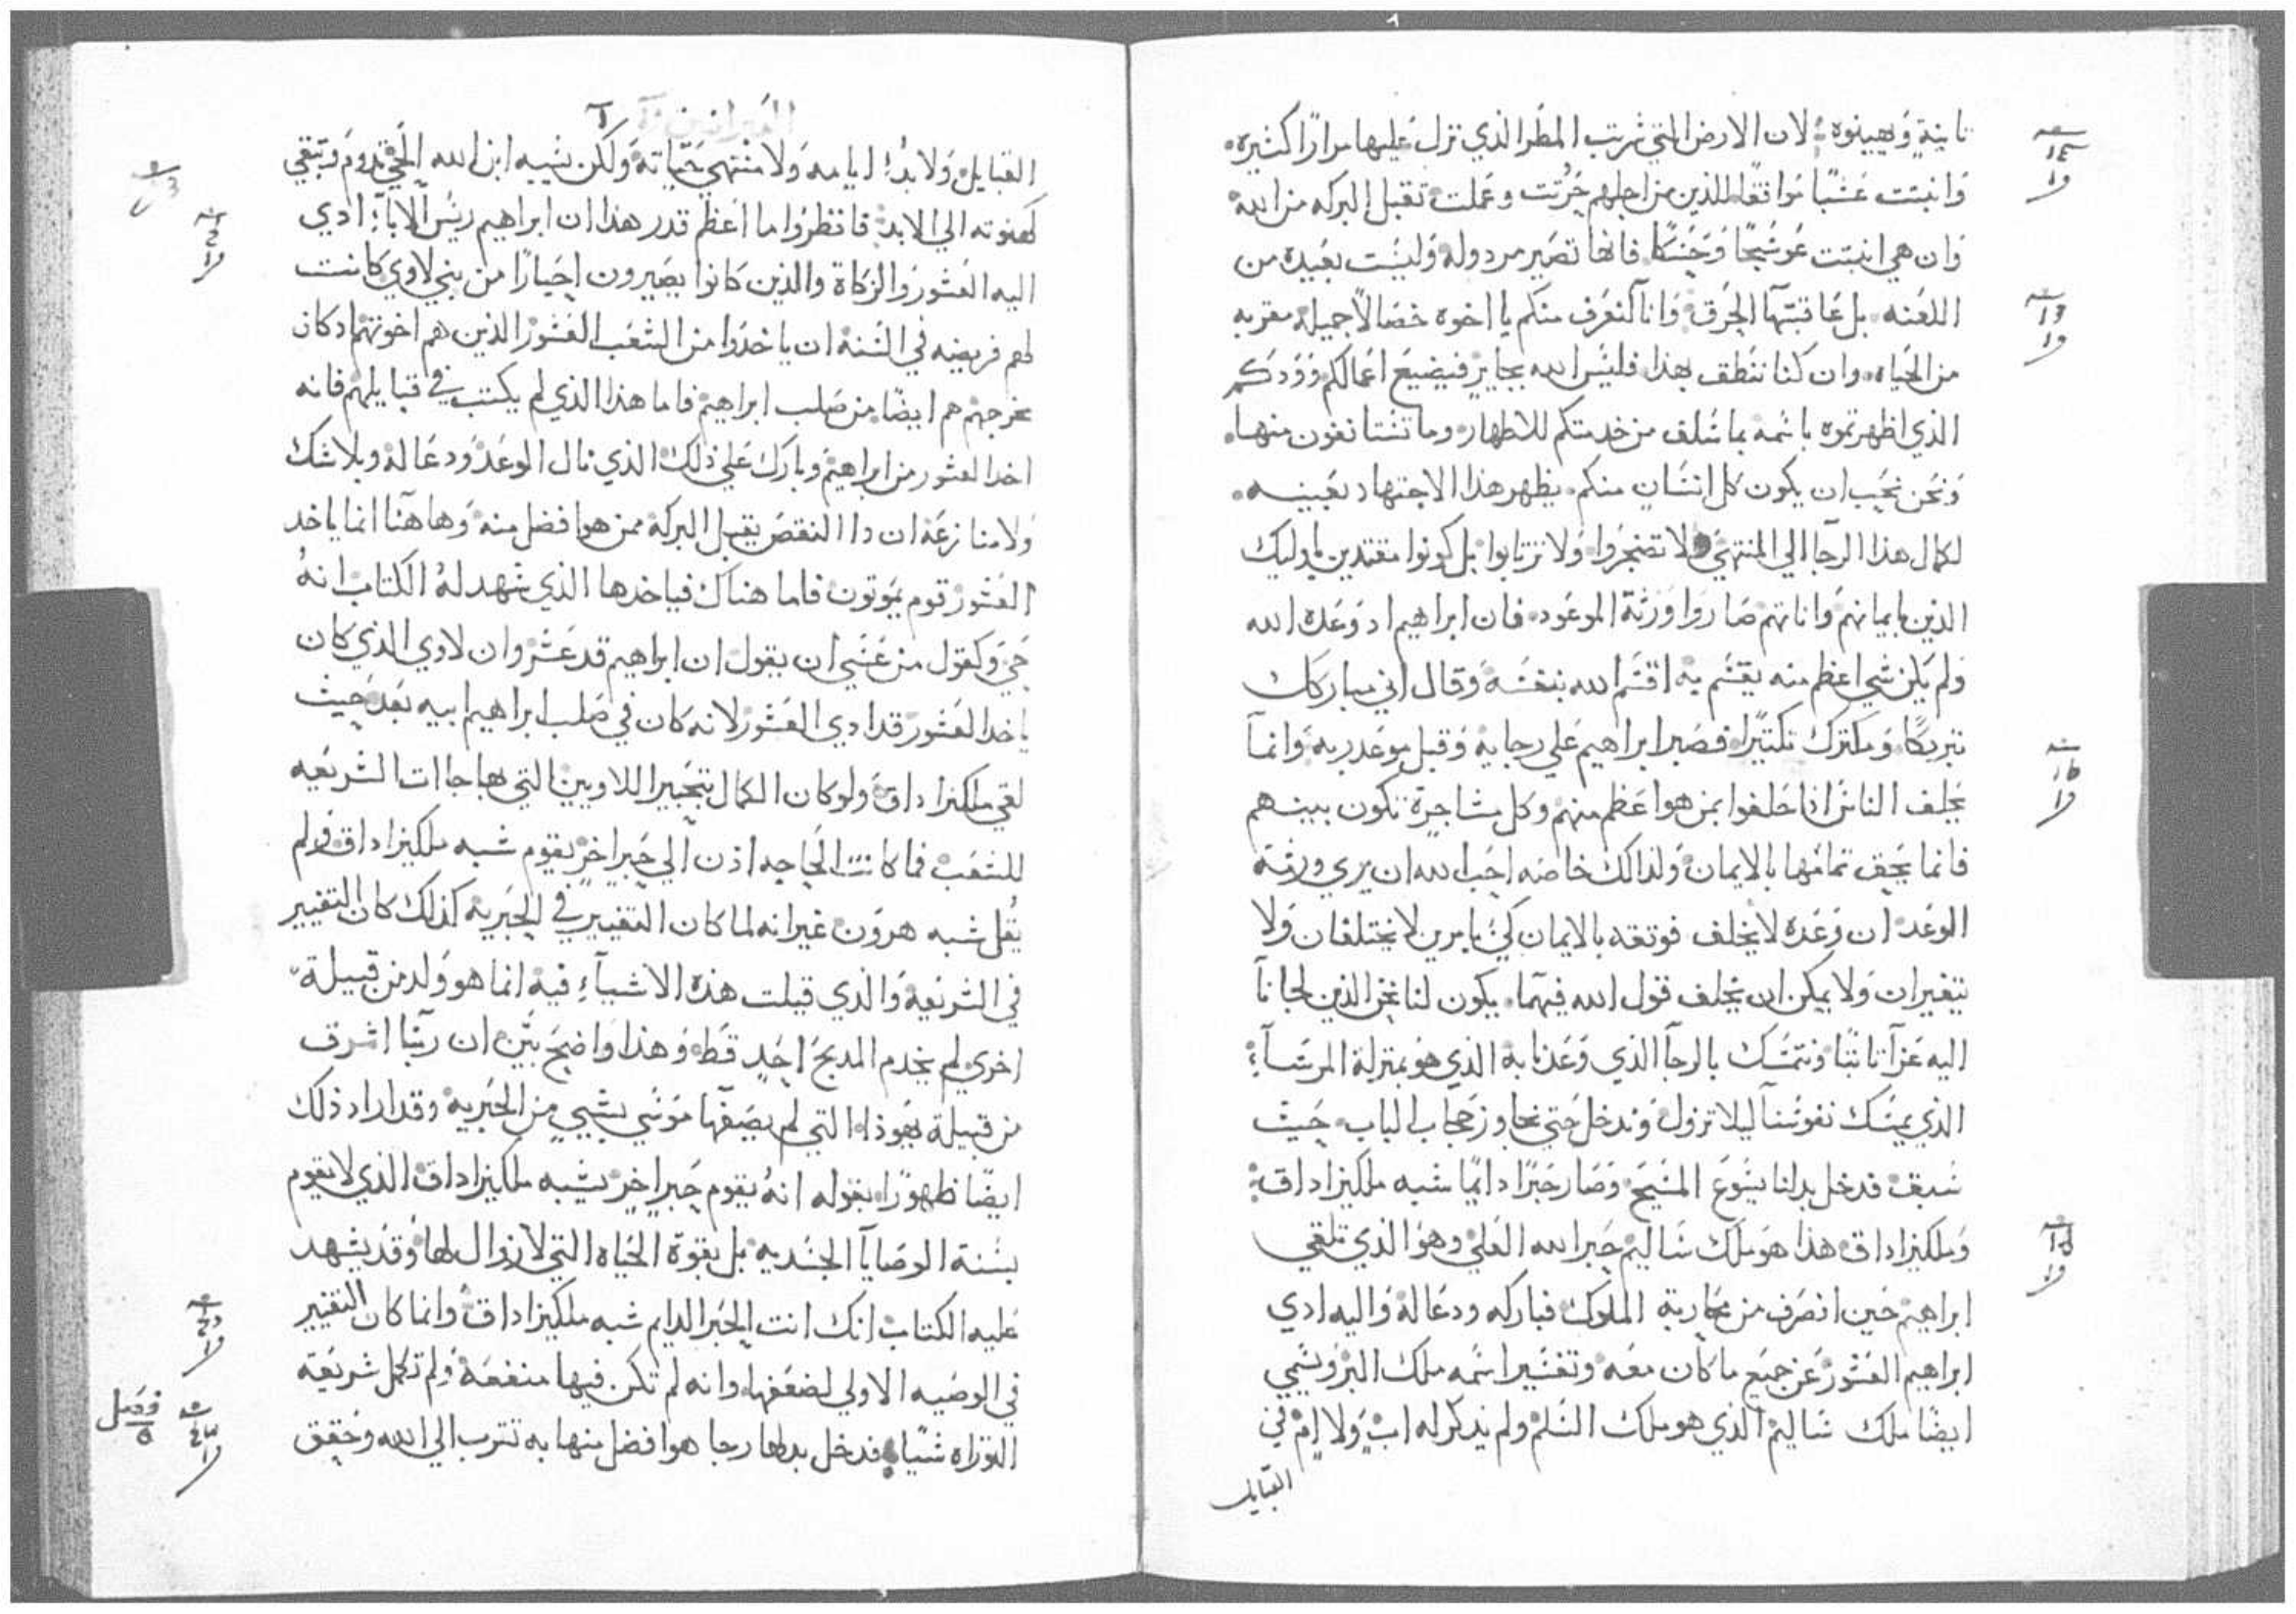 ثانية ويهينوه لان الارض التي شربت المطر الذي نزل عليها مرارًا كثيره
وانبتت عشبًا موافقًا للذين من اجلهم حُرثت وعملت تقبل البركه من الله
وان هي انبتت عوسَجًا وحَسَكًا فانها تصير مردوله وليست بعيده من
اللعنه بل عاقبتها الحرق وانا لنعرف منكم يا اخوه خصالاً جميلة مقربه
من الحياه وان كنا ننطق بهذا فليس الله بجايرٍ فيضيع اعمالكم وودكم
الذي اظهرتموه باسمه بما سلف من خدمتكم للاطهار وما تستانفون منها
ونحن نحب ان يكون كل انسان منكم يظهر هذا الاجتهاد بعينه
لكمال هذا الرجا الي المنتهي ولا تضجروا ولا ترتابوا بل كونوا مقتدين باوليك
الذين بايمانهم واناتهم صاروا ورثة الموعود فان ابراهيم اد وعده الله
ولم يكن شي اعظم منه يقسم به اقسم الله بنفسه وقال اني مباركك
تبريكًا ومكثرك تكثيرًا فصبر ابراهيم علي رجايه وقبل موعد ربه وانما
يحلف الناس اذا حلفوا بمن هو اعظم منهم وكل مشاجرة تكون بينهم
فانما يحق تمامها بالايمان ولدالك خاصه احب الله ان يري ورثة
الوعد ان وعده لا يخلف فوثقه بالايمان كي بامرين لا يختلفان ولا
يتغيران ولا يمكن ان يخلف قول الله فيهما يكون لنا نحن الذين لجانا
اليه عزآ ثابتًا ونتمسك بالرجا الذي وعدنا به الذي هو بمنزلة المرسآء
الذي يمسك نفوسنا ليلا تزول وندخل حتي نجاوز حجاب الباب حيث
سبق فدخل بدلنا يسوع المسيح وصار حبرًا دايمًا شبه ملكيزاداق
وملكيزاداق هذا هو ملك شاليم حبر الله العلي وهو الذي تلقي
ابراهيم حين انصرف من محاربة الملوك فباركه ودعا لهُ واليه ادي
ابراهيم العشور عن جميع ما كان معه وتفسير اسمه ملك البر ويسمي
ايضًا ملك شاليم الذي هو ملك السلم ولم يذكر له ابٌ ولا اِمٌ في
القبايل
القبايل ولا بدُ ايامه ولا منتهي حياته ولكن بشبه ابن الله الحي تدوم وتبقي
كهنوته الي الابد فانظروا ما اعظم قدر هذا ان ابراهيم ريس الابآء ادي
اليه العشور والزكاة والذين كانوا يصيرون احبارًا من بني لاوي كانت
لهم فريضه في السنة ان ياخدوا من الشعب العشور الذين هم اخوتهم اد كان
مخرجهم هم ايضًا من صلب ابراهيم فاما هذا الذي لم يكتب في قبايلهم فانه
اخد العشور من ابراهيم وبارك علي ذلك الذي نال الوعد ودعا لهُ وبلا شك
ولا منازعه ان دا النقص يقبل البركة ممن هو افضل منه وهاهنا انما ياخد
العشور قوم يموتون فاما هناك فياخدها الذي شهد لهُ الكتاب انهُ
حي وكقول من عَسَي ان يقول ان ابراهيم قد عَشر وان لاوي الذي كان
ياخد العشور قد ادي العشور لانه كان في صلب ابراهيم ابيه بعد حيث
لقي ملكيزاداق ولو كان الكمال بتحبير اللاويين التي بها جاات الشريعه
للشعب فما كانت الحاجه اذن الي حَبرٍ اخرٍ يقوم شبه ملكيزاداق ولم
يُقل شبه هرون غير انه لما كان التغيير في الحبريه كذلك كان التغيير
في الشريعه والذي قيلت هذه الاشيآء فيه انما هو ولد من قبيلة
اخري لم يخدم المدبح احدٍ قط وهذا واضح بيّن ان ربنا اشرق
من قبيلة يهوذا التي لم يصفها موسي بشي من الحبريه وقد ازاد ذلك
ايضًا ظهورًا بقوله انهُ يقوم حبر اخر يشبه ملكيزاداق الذي لا يقوم
بسنة الوصايا الجسديه بل بقوة الحياه التي لا زوال لها وقد يشهد
عليه الكتاب انك انت الحبر الدايم شبه ملكيزاداق وانما كان التغيير
في الوصيه الاولي لضعفها وانه لم تكن فيها منفعة ولم تكمل شريعة
التوراه شيًا فدخل بدلها رجا هو افضل منها به نتقرب الي الله وحقق
فصل